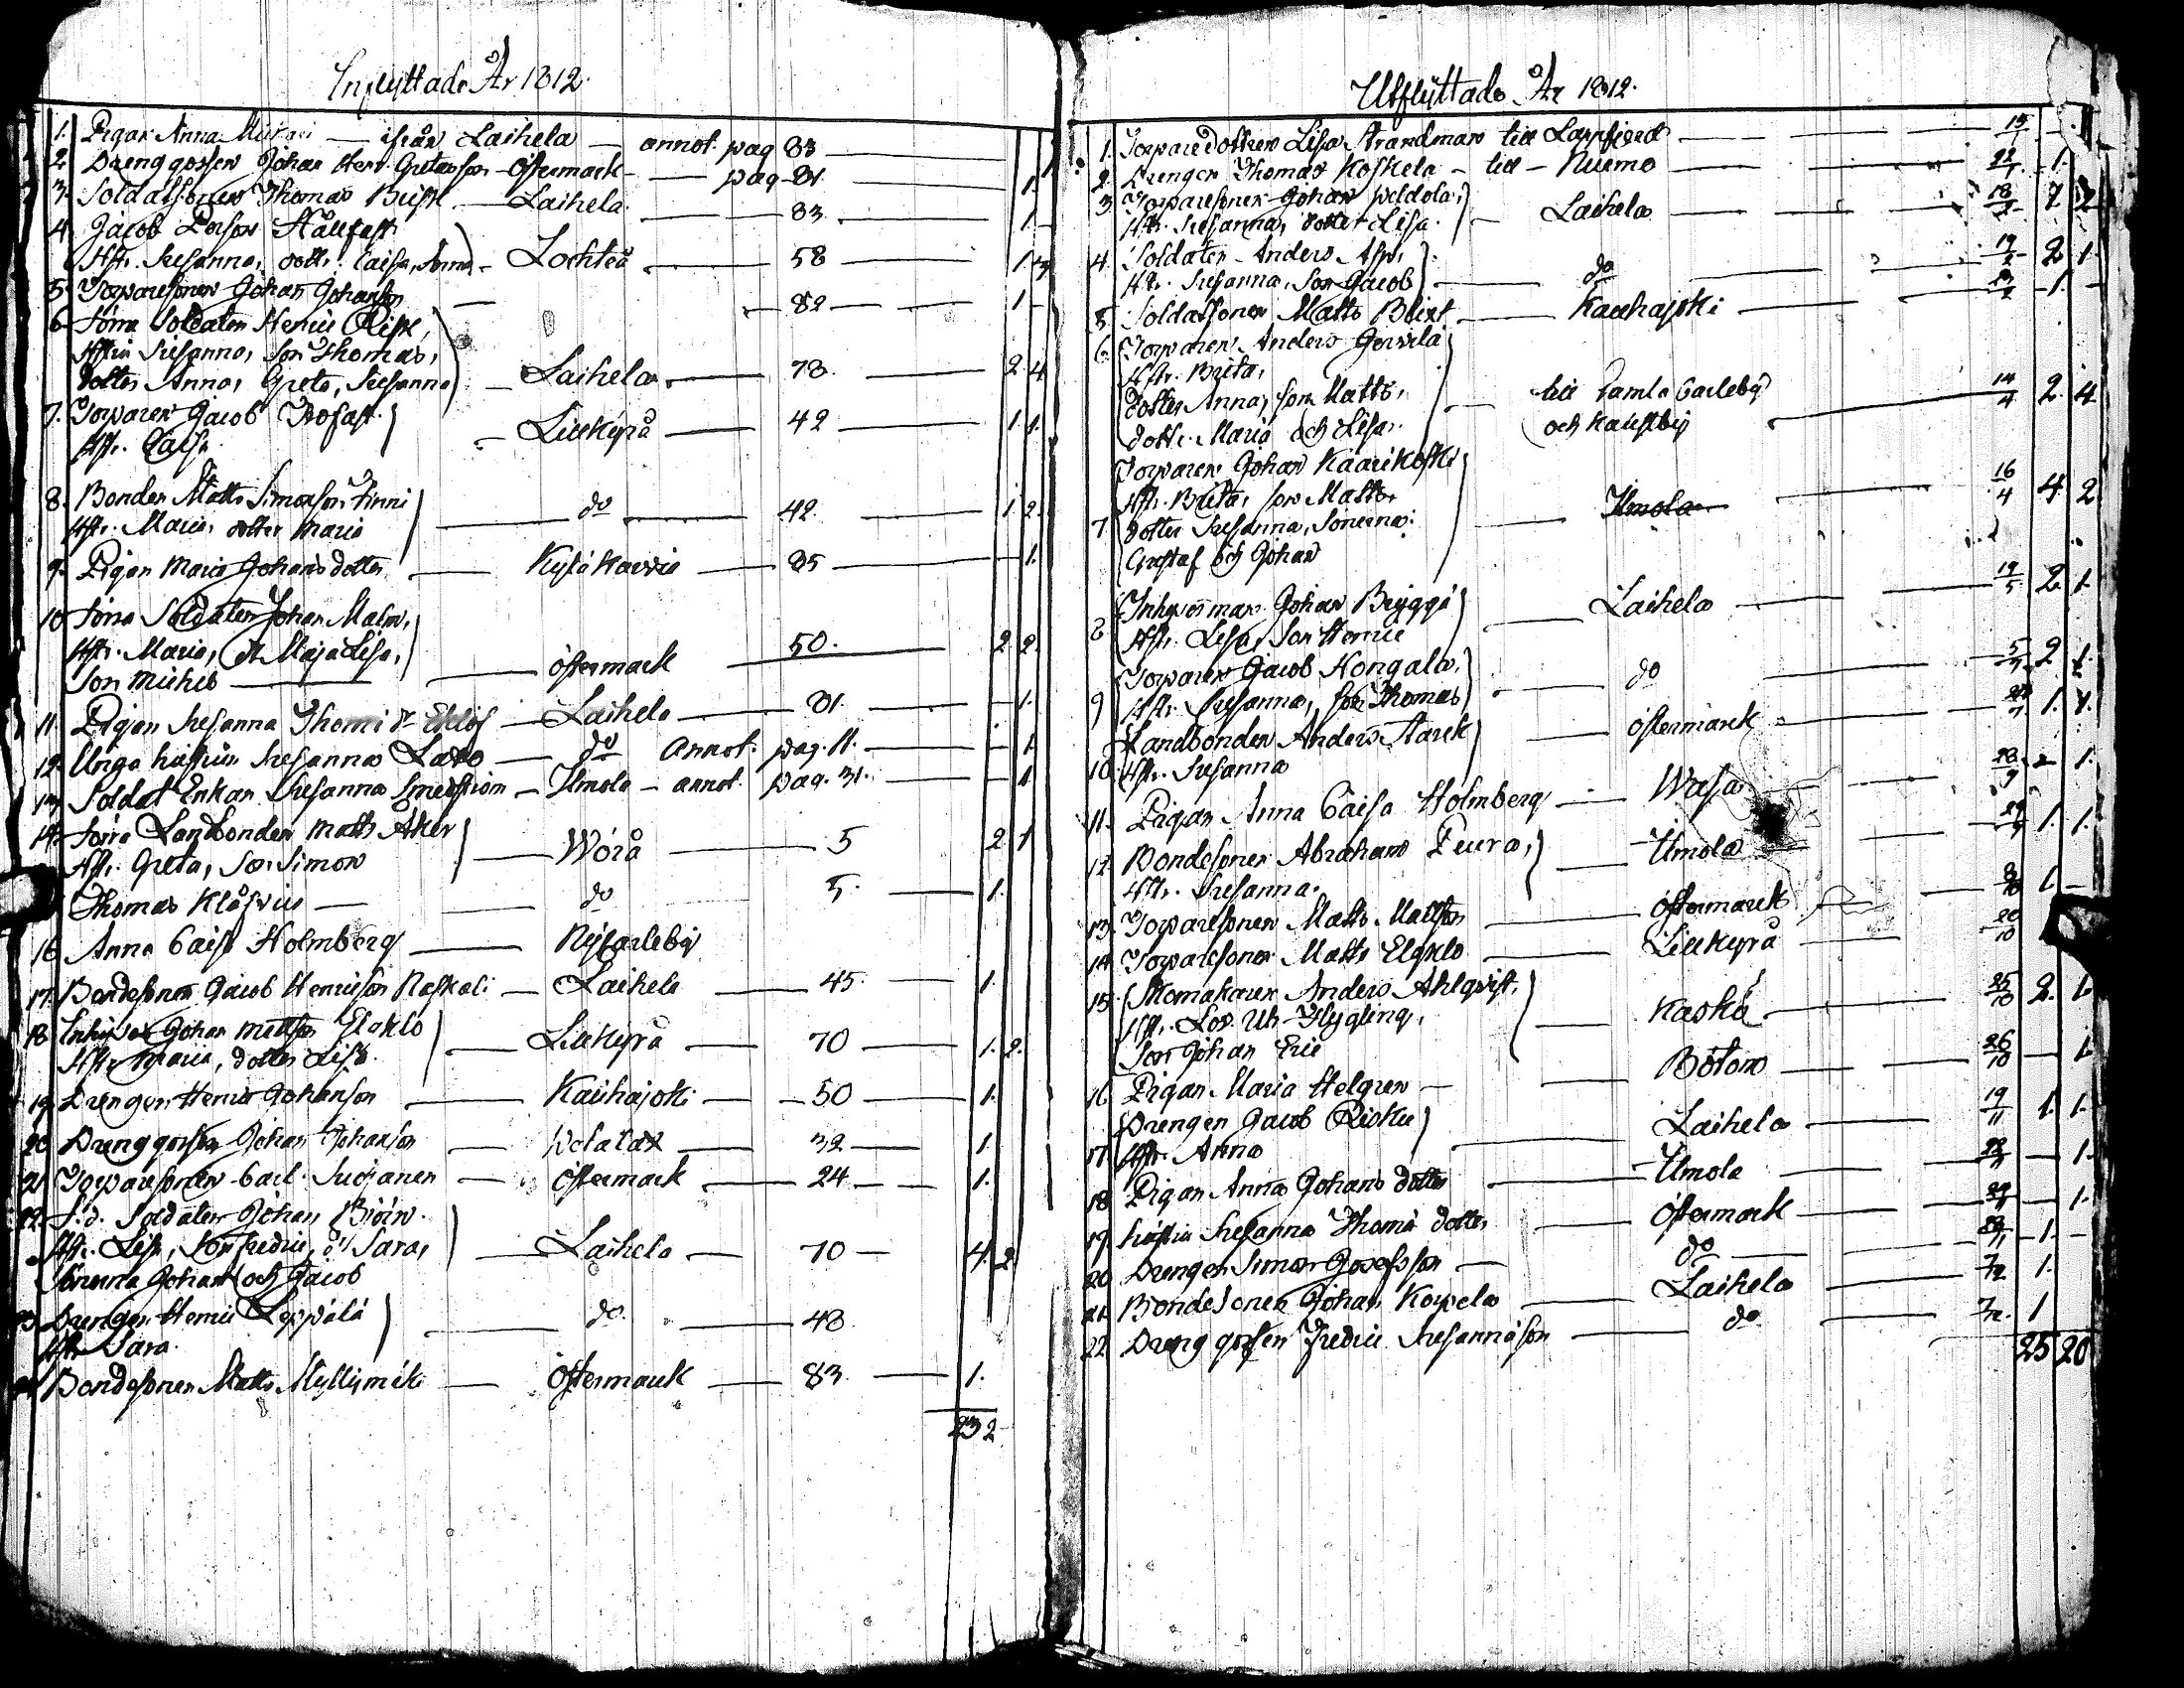 Inflyttade År 1812.
1. Pigan Anna — ifrån Laihela — annot. pag 83 — 1.
2. Drenggossen Johan Henr. Gustafsson — Östermark — pag 81. — 1.
3. Soldatsonen Thomas Busk — Laihela — 83. — 1 —
4. Jacob Persson Stållfast
Hstr. Susanna, dottr. Caisa, Anna — Lochteå — 58 — 1. 3
5. Torparesonen Johan Johansson — 82 — 1 —
6. Förra Soldaten Henric Risk,
Hstru Susanna, son Thomas,
dotter Anna, Greta, Susanna — Laihela — 73. — 2. 4
7. Torparen Jacob Trofast
Hstr. Caisa — Lillkyrå — 42 — 1. 1.
8. Bonden Matts Simonsson Finni
Hstr. Maria, dotter Maria — do — 42. — 1. 2.
9. Pigan Maria Johansdotter — — 85 — — 1.
10 Förra Soldaten Johan Malm,
Hstr. Maria, dr Maja Lisa,
Son Michel — Östermark — 50. — 2 2.
11. Pigan Susanna Thomæ dr — Laihela — 81. — — 1.
12. Unga hustrun Susanna — do annot. pag. 11. — — 1.
13. Soldat Enkan Susanna Smedström — Ilmola — annot. pag. 31. — — 1.
14. Förra Landbonden Matts Åker
Hstr. Greta, Son Simon — Wörå — 5 — 2 1
Thomas — do — 5. — 1.
16 Anna Caisa Holmberg — Nycarleby
17. Bondesonen Jacob Henricsson Raskali — Laihela — 45. — 1.
18. Inhyses Johan Mattsson Elgklo
Hstr Maria, dotter Lisa — Lillkyrå — 70 — 1. 2.
19. Drengen Henric Johansson — Kauhajoki — 50 — 1.
20 Drenggossen Johan Johansson — — 32 — 1.
21 Torparesonen Carl — Östermark — 24 — 1.
22. f.d. Soldaten Johan Björn.
Hstr. Lisa, Son Fredric, dr Sara,
Sönerna Johan och Jacob — Laihela — 70 — 4. 2
23 Drengen Henric Leppälä
Hstr Sara. — do. — 48.
Bondesonen Matts Myllymäki — Östermark — 83. — 1.
23 2
Utflyttade År 1812.
1. Torparedottren Lisa Strandman till Lappfjerd — 15 — 1
2. Drengen Thomas Koskela — till — Nurmo — 22/1 — 1. —
3. Torparesonen Johan
Hstr. Susanna, dotter Lisa. — Laihela — 18/2
4. Soldaten Anders Asp,
Hstr. Susanna, Son Jacob — do — 19/2 2. 1.
5. Soldatsonen Matts Blixt — Kauhajoki — 1. —
6. Torparen Anders
Hstr. Brita,
dotter Anna, son Matts,
dottr. Maria och Lisa. — till Gamla Carleby
och Kaustby — 14/4 2. 4.
7 Torparen Johan Kaarikoski
Hstr. Brita, son Matts
dotter Susanna, Sönerna:
Gustaf och Johan — Ilmola — 16/4 4 2
8 Inhysesman Johan Bryggä
Hstr. Lisa, Son Henric — Laihela — 19/5 2. 1.
9 Torparen Jacob Hongala,
Hstr. Susanna, Son Thomas — do — 2 1.
10. Landbonden Anders Starck
Hstr. Susanna — Östermark — 1. 1.
11. Pigan Anna Caisa Holmberg — Wasa — 1.
12. Bondesonen Abraham Peura,
Hstr. Susanna. — Ilmola — 1. 1.
13. Torparesonen Matts Mattsson — Östermark — 1. —
14. Torparesonen Matts Elgklo — Lillkyrå — 20/10
15. Skomakaren Anders Ahlqvist,
Hstr. Lov. Ulr. Flygling,
Son Johan Eric — Kaskö — 25/10 2. 1.
16. Pigan Maria Helgren — Bötom — 26/10 — 1.
17. Drengen Jacob Risku
Hstr. Anna — Laihela — 19/11 1. 1.
18. Pigan Anna Johans dotter — Ilmola — — 1.
19. hustru Susanna Thomæ dotter — Östermark — — 1.
20. Drengen Simon Josefsson — do — 1. —
21. Bondesonen Johan Korpela — Laihela — 1.
22. Drenggossen Fredric Susannäson — do — 1
25 20